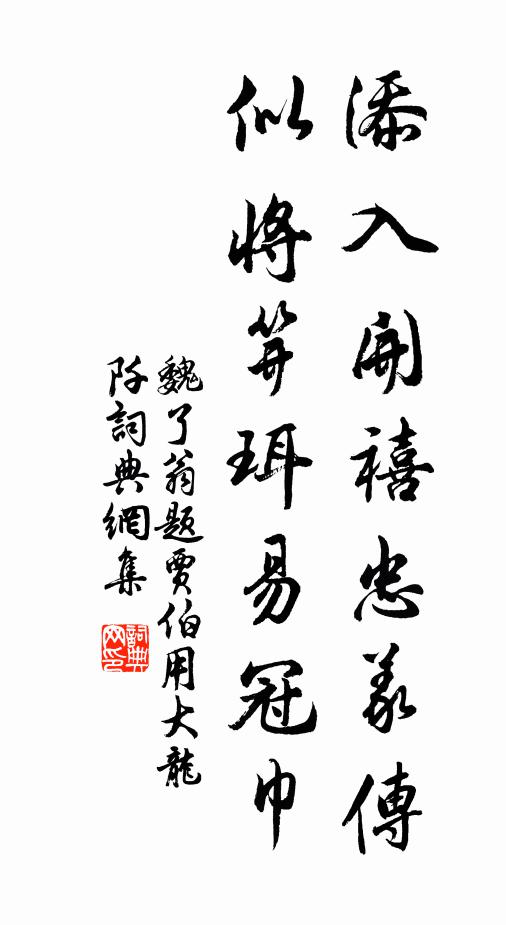 添入開禧忠義傳
似將笄珥易冠巾
魏了翁題賈伯用大龍
阡詞典網集
詞典
网印